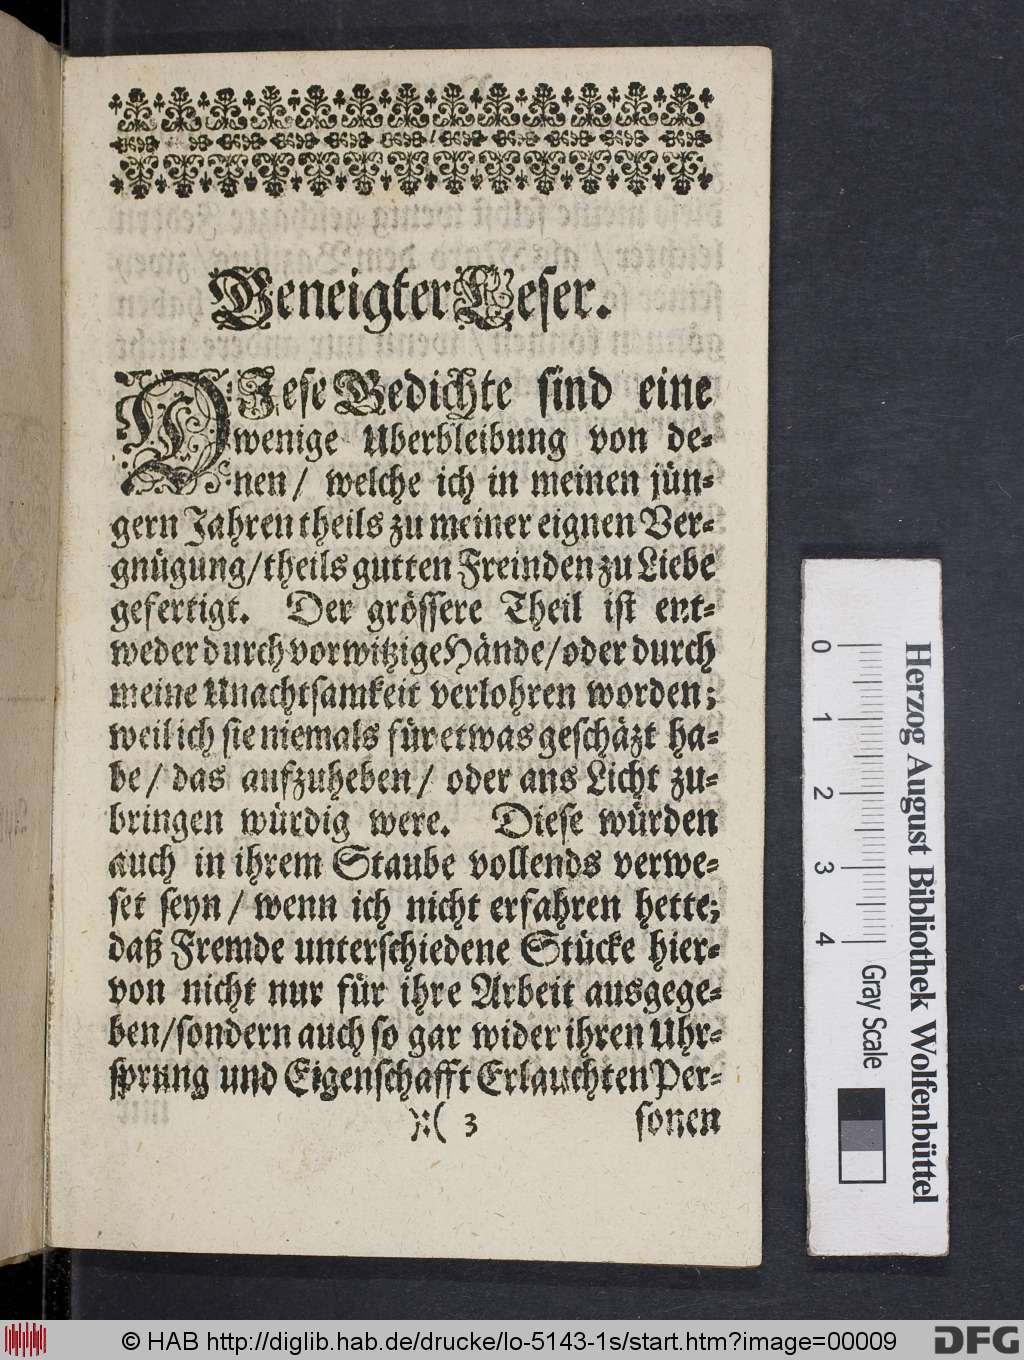 Geneigter Leser.
DIese Gedichte sind eine
wenige Uberbleibung von de-
nen / welche ich in meinen jün-
gern Jahren theils zu meiner eignen Ver-
gnügung / theils gutten Freinden zu Liebe
gefertigt. Der grössere Theil ist ent-
weder durch vorwitzige Hände / oder durch
meine Unachtsamkeit verlohren worden;
weil ich sie niemals für etwas geschäzt ha-
be / das aufzuheben / oder ans Licht zu-
bringen würdig were. Diese würden
auch in ihrem Staube vollends verwe-
set seyn / wenn ich nicht erfahren hette;
daß Fremde unterschiedene Stücke hier-
von nicht nur für ihre Arbeit ausgege-
ben / sondern auch so gar wider ihren Uhr-
sprung und Eigenschafft Erlauchten Per-
):( 3 sonen
Herzog August Bibliothek Wolfenbüttel
0 1 2 3 4 Gray Scale
© HAB http://diglib.hab.de/drucke/lo-5143-1s/start.htm?image=00009 DFG